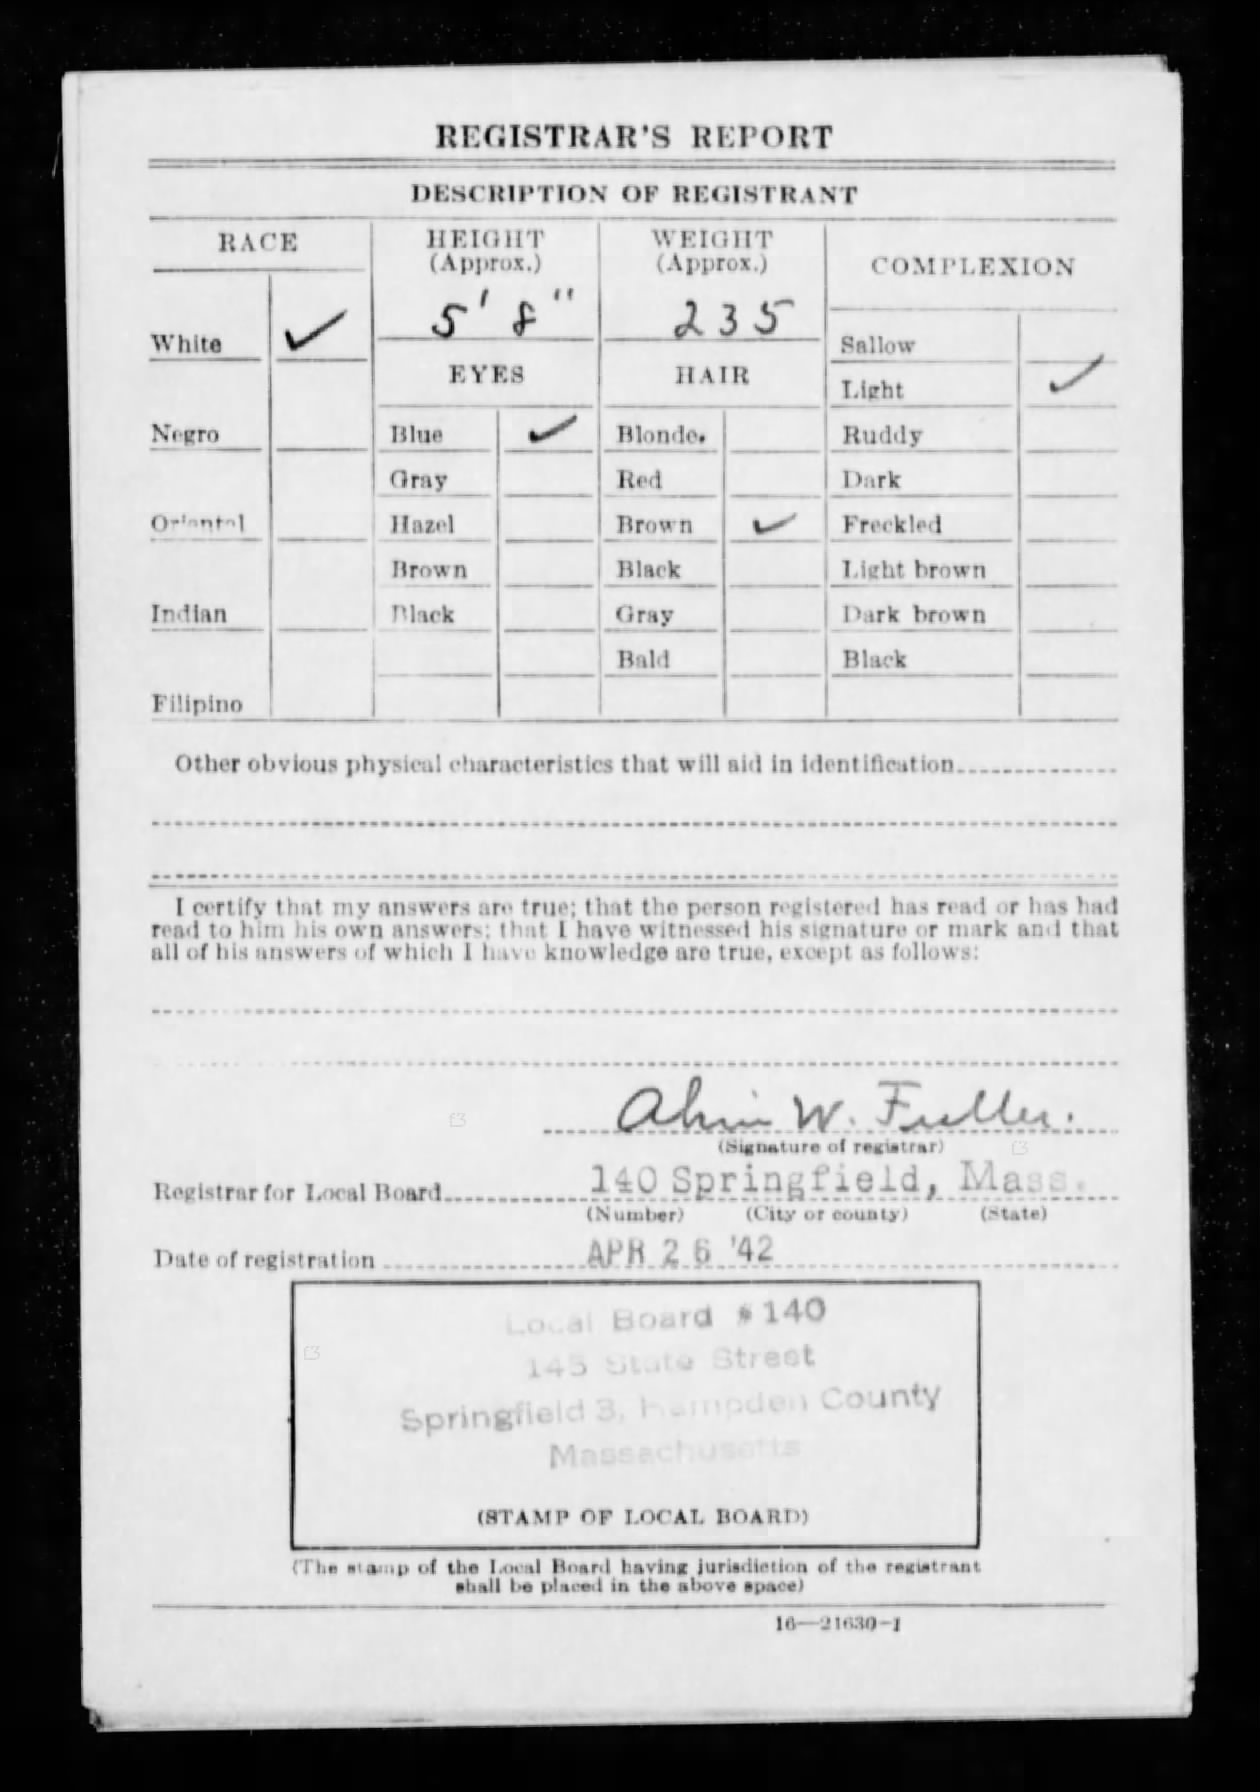 REGISTRAR'S REPORT
DESCRIPTION OF REGISTRANT
RACE
HEIGHT
(Approx.)
WEIGHT
(Approx.)
COMPLEXION
White ✓
5' 8"
235
Sallow
EYES
HAIR
Light ✓
Negro
Blue ✓
Blonde
Ruddy
Gray
Red
Dark
Oriental
Hazel
Brown ✓
Freckled
Brown
Black
Light brown
Indian
Black
Gray
Dark brown
Bald
Black
Filipino
Other obvious physical characteristics that will aid in identification
I certify that my answers are true; that the person registered has read or has had
read to him his own answers; that I have witnessed his signature or mark and that
all of his answers of which I have knowledge are true, except as follows:
Alvin W. Fuller.
(Signature of registrar)
Registrar for Local Board 140 Springfield, Mass.
(Number) (City or county) (State)
Date of registration APR 26 '42
Local Board #140
145 State Street
Springfield 3, Hampden County
Massachusetts
(STAMP OF LOCAL BOARD)
(The stamp of the Local Board having jurisdiction of the registrant
shall be placed in the above space)
16—21630-1